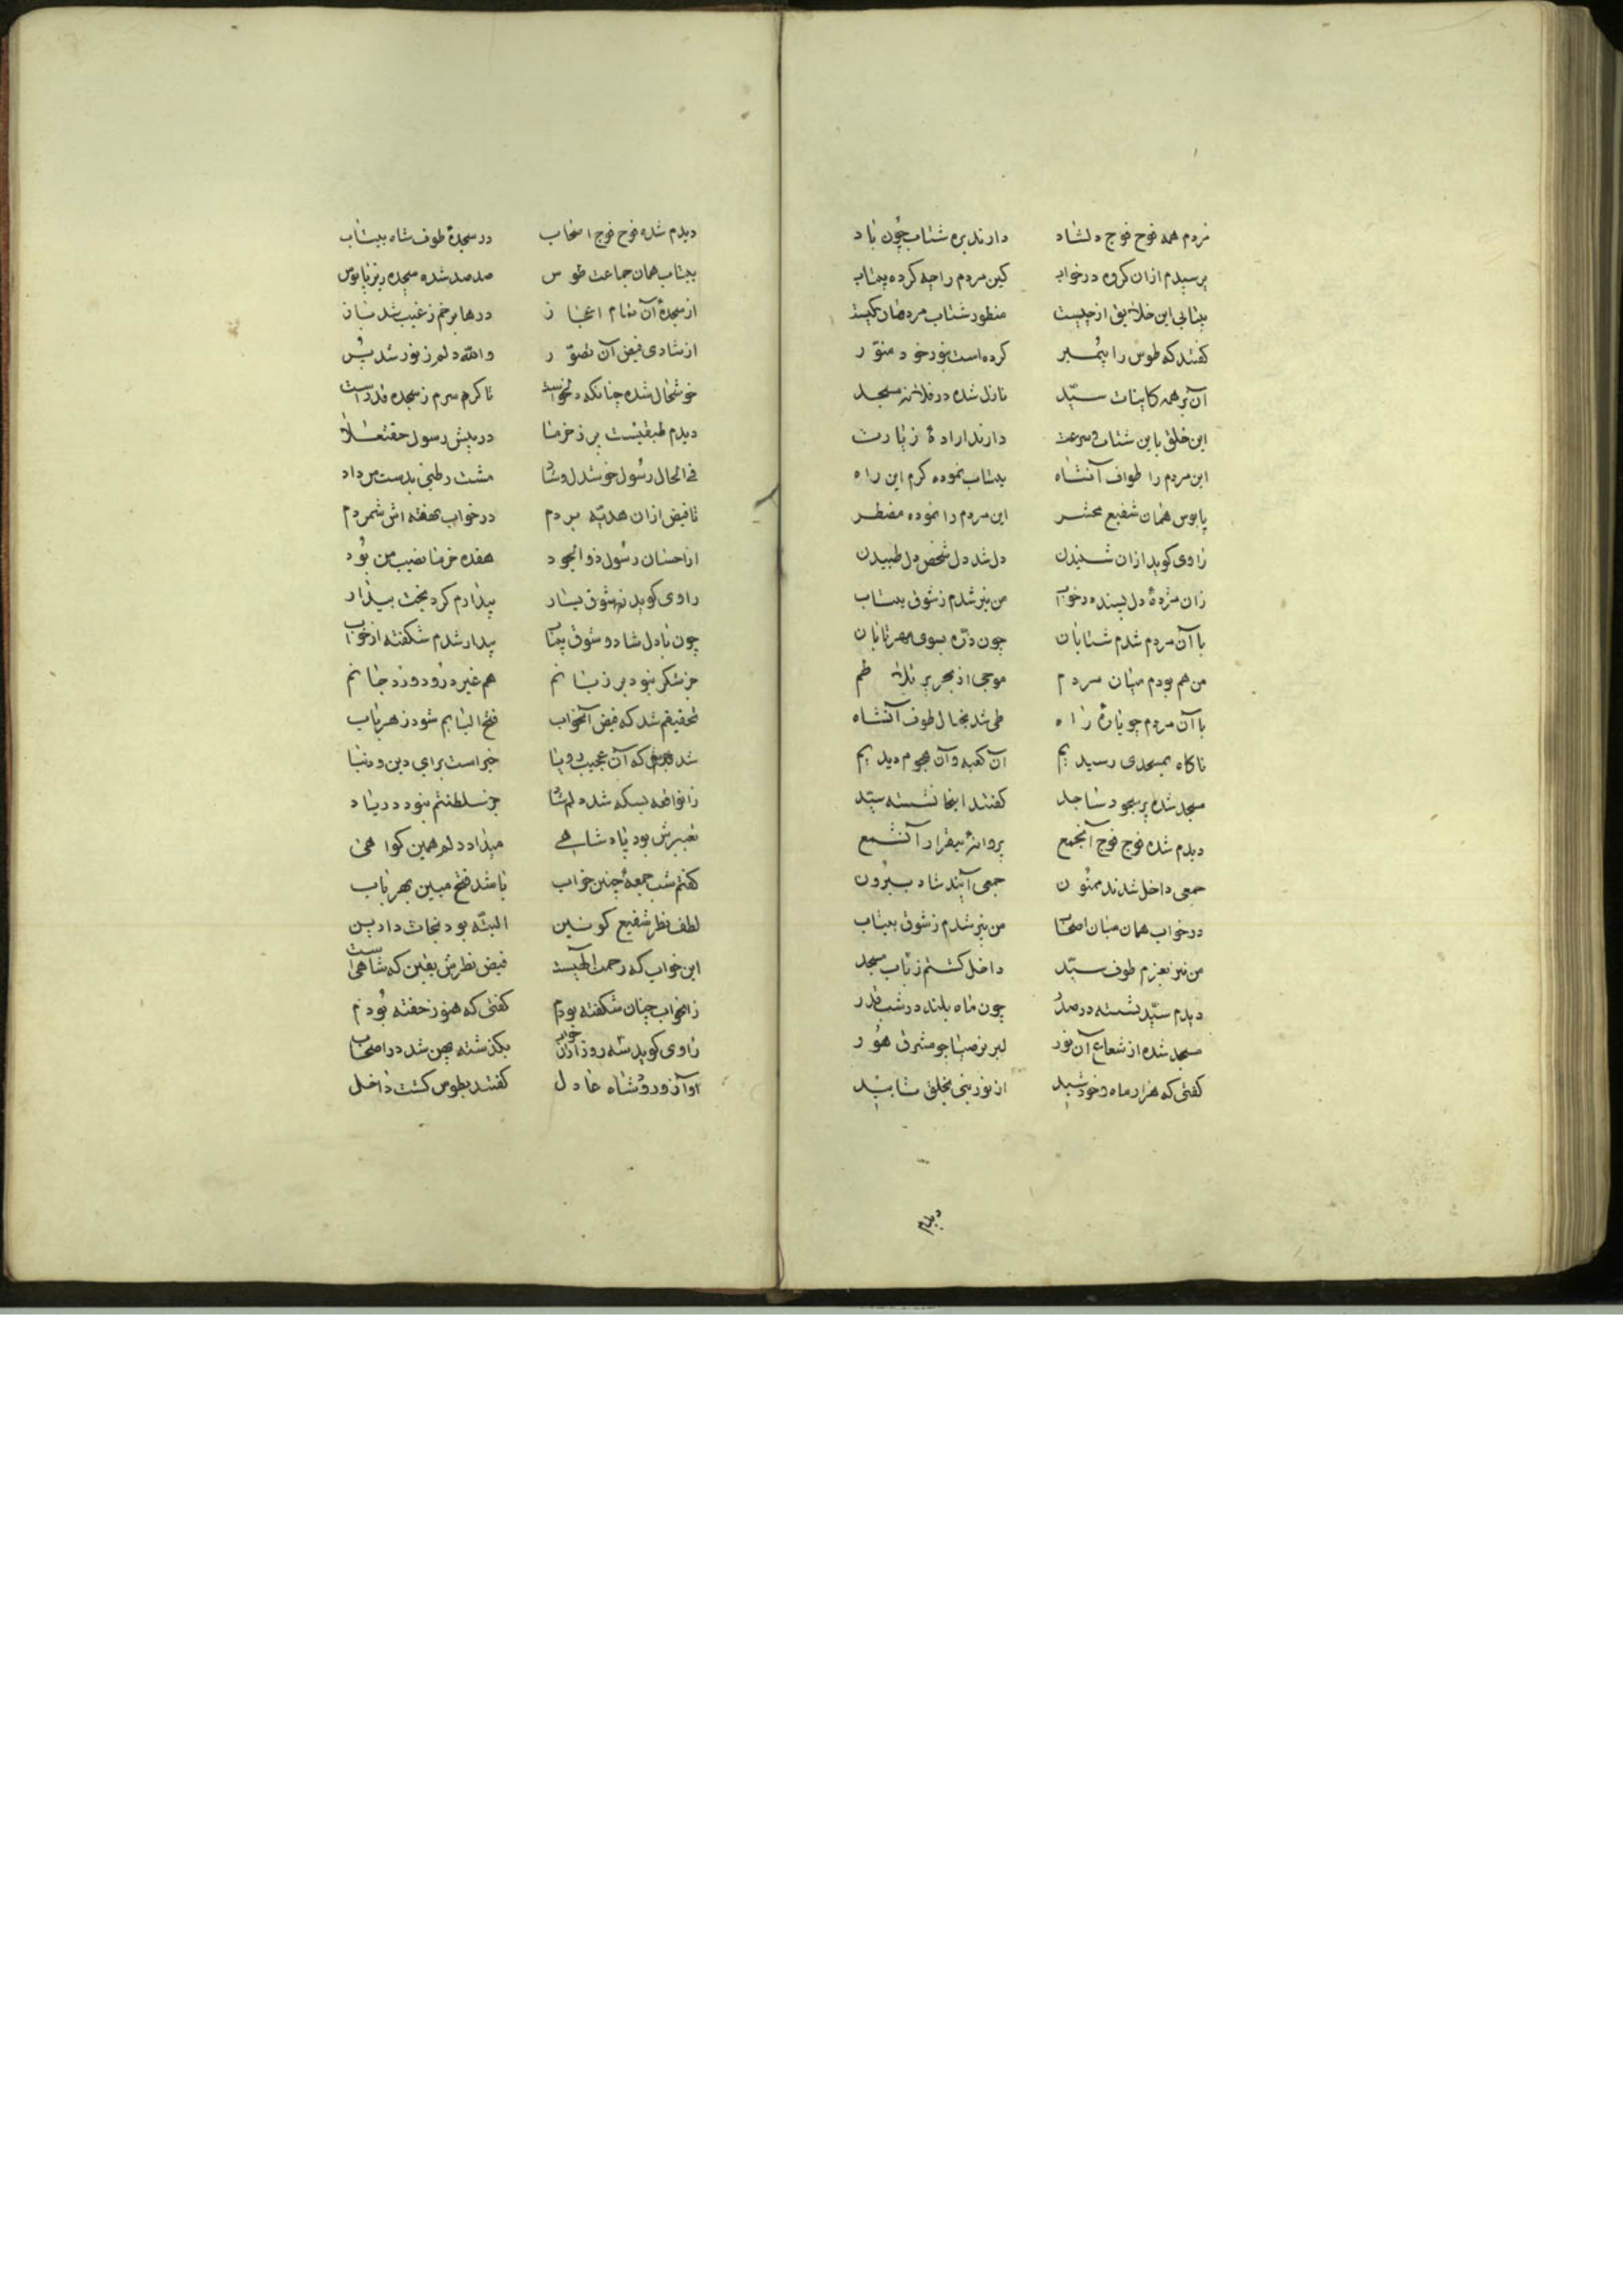 مردم همه فوج فوج دلشاد دارند بره شتاب چون باد
پرسیدم ازان کروه درخواب کین مردم را چه کرده بیتاب
بیتابی این خلایق از چیست منظور شتاب مردمان کیست
کفتند که طوس را پیمبر کرده است بنور خود منور
آن بر همه کاینات سید نازل شده در فلانه مسجد
این خلق باین شتاب و سرعت دارند ارادهٔ زیارت
این مردم را طواف آنشاه بیتاب نموده کرم این راه
پابوس همان شفیع محشر این مردم را نموده مضطر
راوی کوید ازان شنیدن دل شد دل شخص دل طپیدن
زان مژدهٔ دل پسند درخواب من نیز شدم ز شوق بیتاب
با آن مردم شدم شتابان چون ذره بسوی مهر تابان
من هم بودم میان مردم موجی از بحر پر تلاطم
با آن مردم چو پارهٔ راه طی شد بخیال طوف آنشاه
ناکاه بمسجدی رسیدیم آن کعبه و آن هجوم دیدیم
مسجد شده پر سجود ساجد کفتند اینجا نشسته سید
دیدم شده فوج فوج آنجمع پروانهٔ بیقرار آنشمع
جمعی داخل شدند ممنون جمعی آیند شاد بیرون
درخواب همان میان اصحاب من نیز شدم ز شوق بیتاب
من نیز بعزم طوف سید داخل کشتم ز باب مسجد
دیدم سید نشسته در صدر چون ماه بلند در شب قدر
مسجد شده از شعاع آن نور لبریز ضیا چو مشرق هور
کفتی که هزار ماه و خورشید از نور نبی بخلق تابید
دیدم
دیدم شده فوج فوج اصحاب در سجدهٔ طوف شاه بیتاب
بیتاب همان جماعت طوس صد صد شده سجده ریز پابوس
از سجدهٔ آن تمام اعجاز درها برخم ز غیب شد باز
از شادی فیض آن تصور والله دلم ز نور شد پر
خوشحال شده چنانکه دلخواست تا کردم سرم ز سجده قد راست
دیدم طبقیست پر ز خرما در پیش رسول حقتعالا
فی الحال رسول خوشدل و شاد مشت رطبی بدست من داد
تا فیض ازان هدیه بردم درخواب بهفته اش شمردم
از احسان رسول ذوالجود هفده خرما نصیب من بود
راوی کوید شوق بسیار بیدارم کرد بخت بیدار
چون با دل شاد و شوق بیتاب بیدار شدم شکفته از خواب
جز شکر نبود بر زبانم هم غیر درود ورد جانم
تحقیقم شد که فیض آنخواب فتح البابم شود ز هر باب
شد که آن عجیب رویا خیر است برای دین و دنیا
زانواقعه بسکه شد دلم شاد جز سلطنتم نبود در یاد
تعبیرش بود پادشاهی میداد دلم همین کواهی
کفتم شب جمعهٔ چنین خواب باشد فتح مبین بهر باب
لطف نظر شفیع کونین البته بود نجات دارین
این خواب که رحمت الهیست فیض نظرش یقین که شاهیست
زانخواب چنان شکفته بودم کفتی که هنوز خفته بودم
راوی کوید سه روز ازان خواب بکذشته پهن شد در اصحاب
آوازه ورود شاه عادل کفتند بطوس کشت داخل